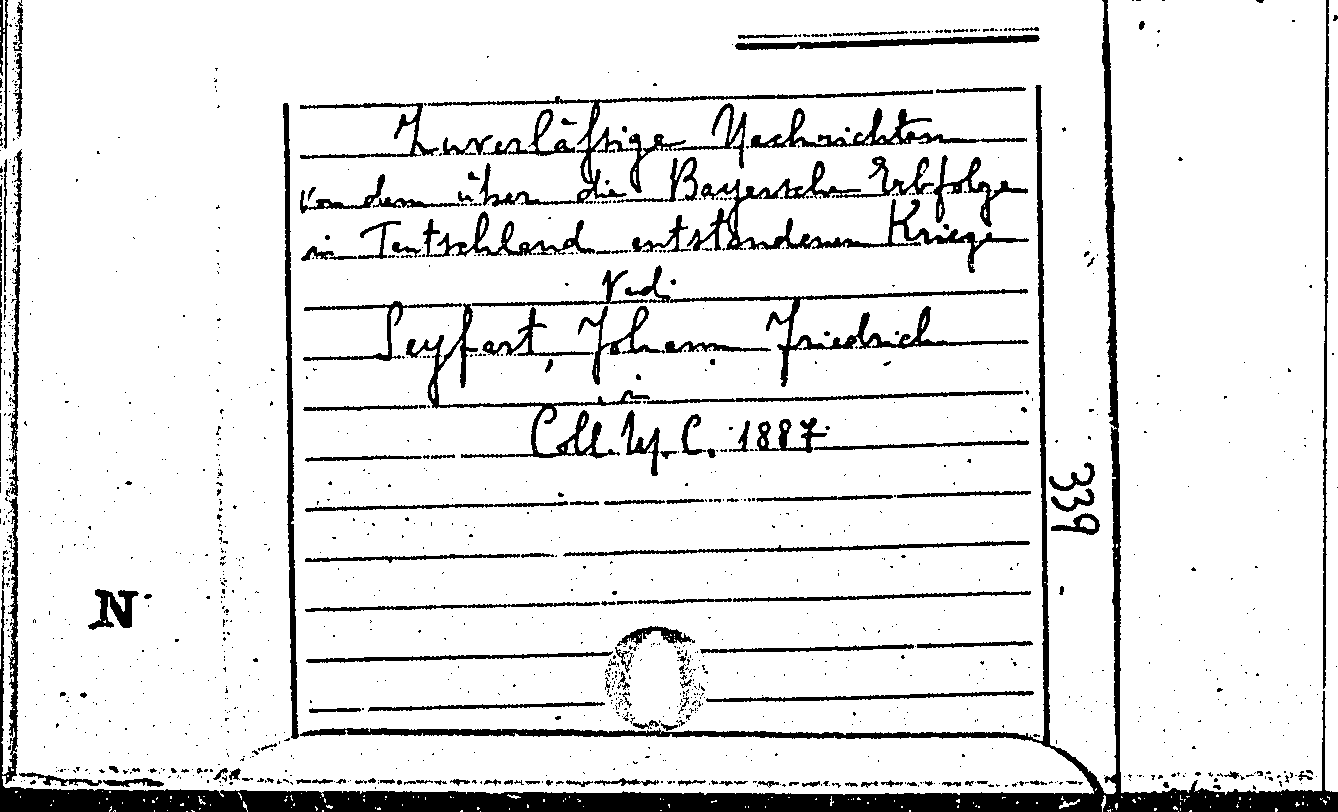 Zuverläſsige Nachrichten
von dem über die Bayersche Erbfolge
in Teutschland entstandenen Kriege
Vedi
Seyfart, Johann Friedrich
in
Coll. C. 1887
339
N